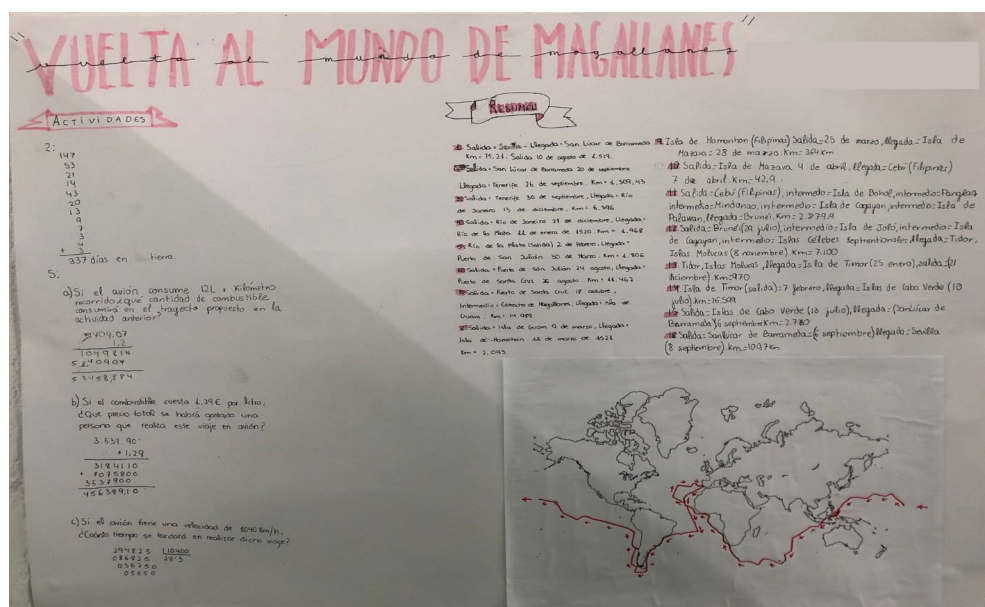 "VUELTA AL MUNDO DE MAGALLANES"
vuelta al mundo de magallanes
ACTIVIDADES
2:
147
53
21
14
43
20
13
9
7
3
4
+ 3
337 días en tierra.
5.
a) Si el avión consume 12L x Kilómetro
recorrido ¿qué cantidad de combustible
consumirá en el trayecto propuesto en la
actividad anterior?
1.2
1049814
b) Si el combustible cuesta 1,29€ por litro.
¿Que precio total se habrá gastado una
persona que realiza este viaje en avión?
3.537.90
× 1.29
3184110
+ 7075800
3537900
456389,10
c) Si el avión tiene una velocidad de
¿Cuánto tiempo se tardará en realizar dicho viaje?
294825 10400
086825 28'3
036250
05050
RESUMEN
Salida = Sevilla - Llegada = San Lúcar de Barrameda
Km = 75,21. Salida 10 de agosto de 1.519.
Salida = San Lúcar de Barrameda 20 de septiembre
Llegada = Tenerife 26 de septiembre. Km = 1.309,43
Salida = Tenerife 30 de septiembre, Llegada = Río
de Janeiro 13 de diciembre. Km = 6.396
Salida = Río de Janeiro 27 de diciembre, Llegada =
Río de la Plata 11 de enero de 1520. Km = 1.968
Río de la Plata (Salida) 2 de febrero, Llegada =
Puerto de San Julián 30 de Marzo. Km = 1.806
Salida = Puerto de San Julián 24 agosto, Llegada =
Puerto de Santa Cruz 26 agosto. Km = 11.462
Salida = Puerto de Santa Cruz 18 octubre,
Intermedio = Estrecho de Magallanes, Llegada = Isla de
Guam. Km = 14.989
Salida = isla de Guam 9 de marzo, Llegada =
Isla de Homonhon 16 de marzo de 1521
Km = 2.093
Isla de Homonhon (Filipinas) Salida = 25 de marzo, llegada = Isla de
Mazava = 28 de marzo. Km = 364 km
10 Salida = Isla de Mazava 4 de abril, llegada = Cebú (Filipinas)
7 de abril. Km = 42,9
11 Salida = Cebú (Filipinas), intermedio = Isla de Bohol, intermedio = Panglao,
intermedio = Mindanao, intermedio = Isla de Cagayan, intermedio = Isla de
Palawan, llegada = Brunei. Km = 2.879,9
12 Salida = Brunei (29 julio), intermedio = Isla de Joló, intermedio = Isla
de Cagayan, intermedio = Islas Célebes Septentrionales, llegada = Tidor,
Islas Molucas (8 noviembre). Km = 7.100
13 Tidor, Islas Molucas, llegada = Isla de Timor (25 enero), salida = (21
diciembre). Km = 970
14 Isla de Timor (salida) = 7 febrero, llegada = Islas de Cabo Verde (10
julio). Km = 16.599
Salida = Islas de Cabo Verde (13 julio), llegada = (Sanlúcar de
Barramada) 6 septiembre Km = 2.780
Salida = Sanlúcar de Barrameda = (6 septiembre) llegada = Sevilla
(8 septiembre). Km = 109,7 Km